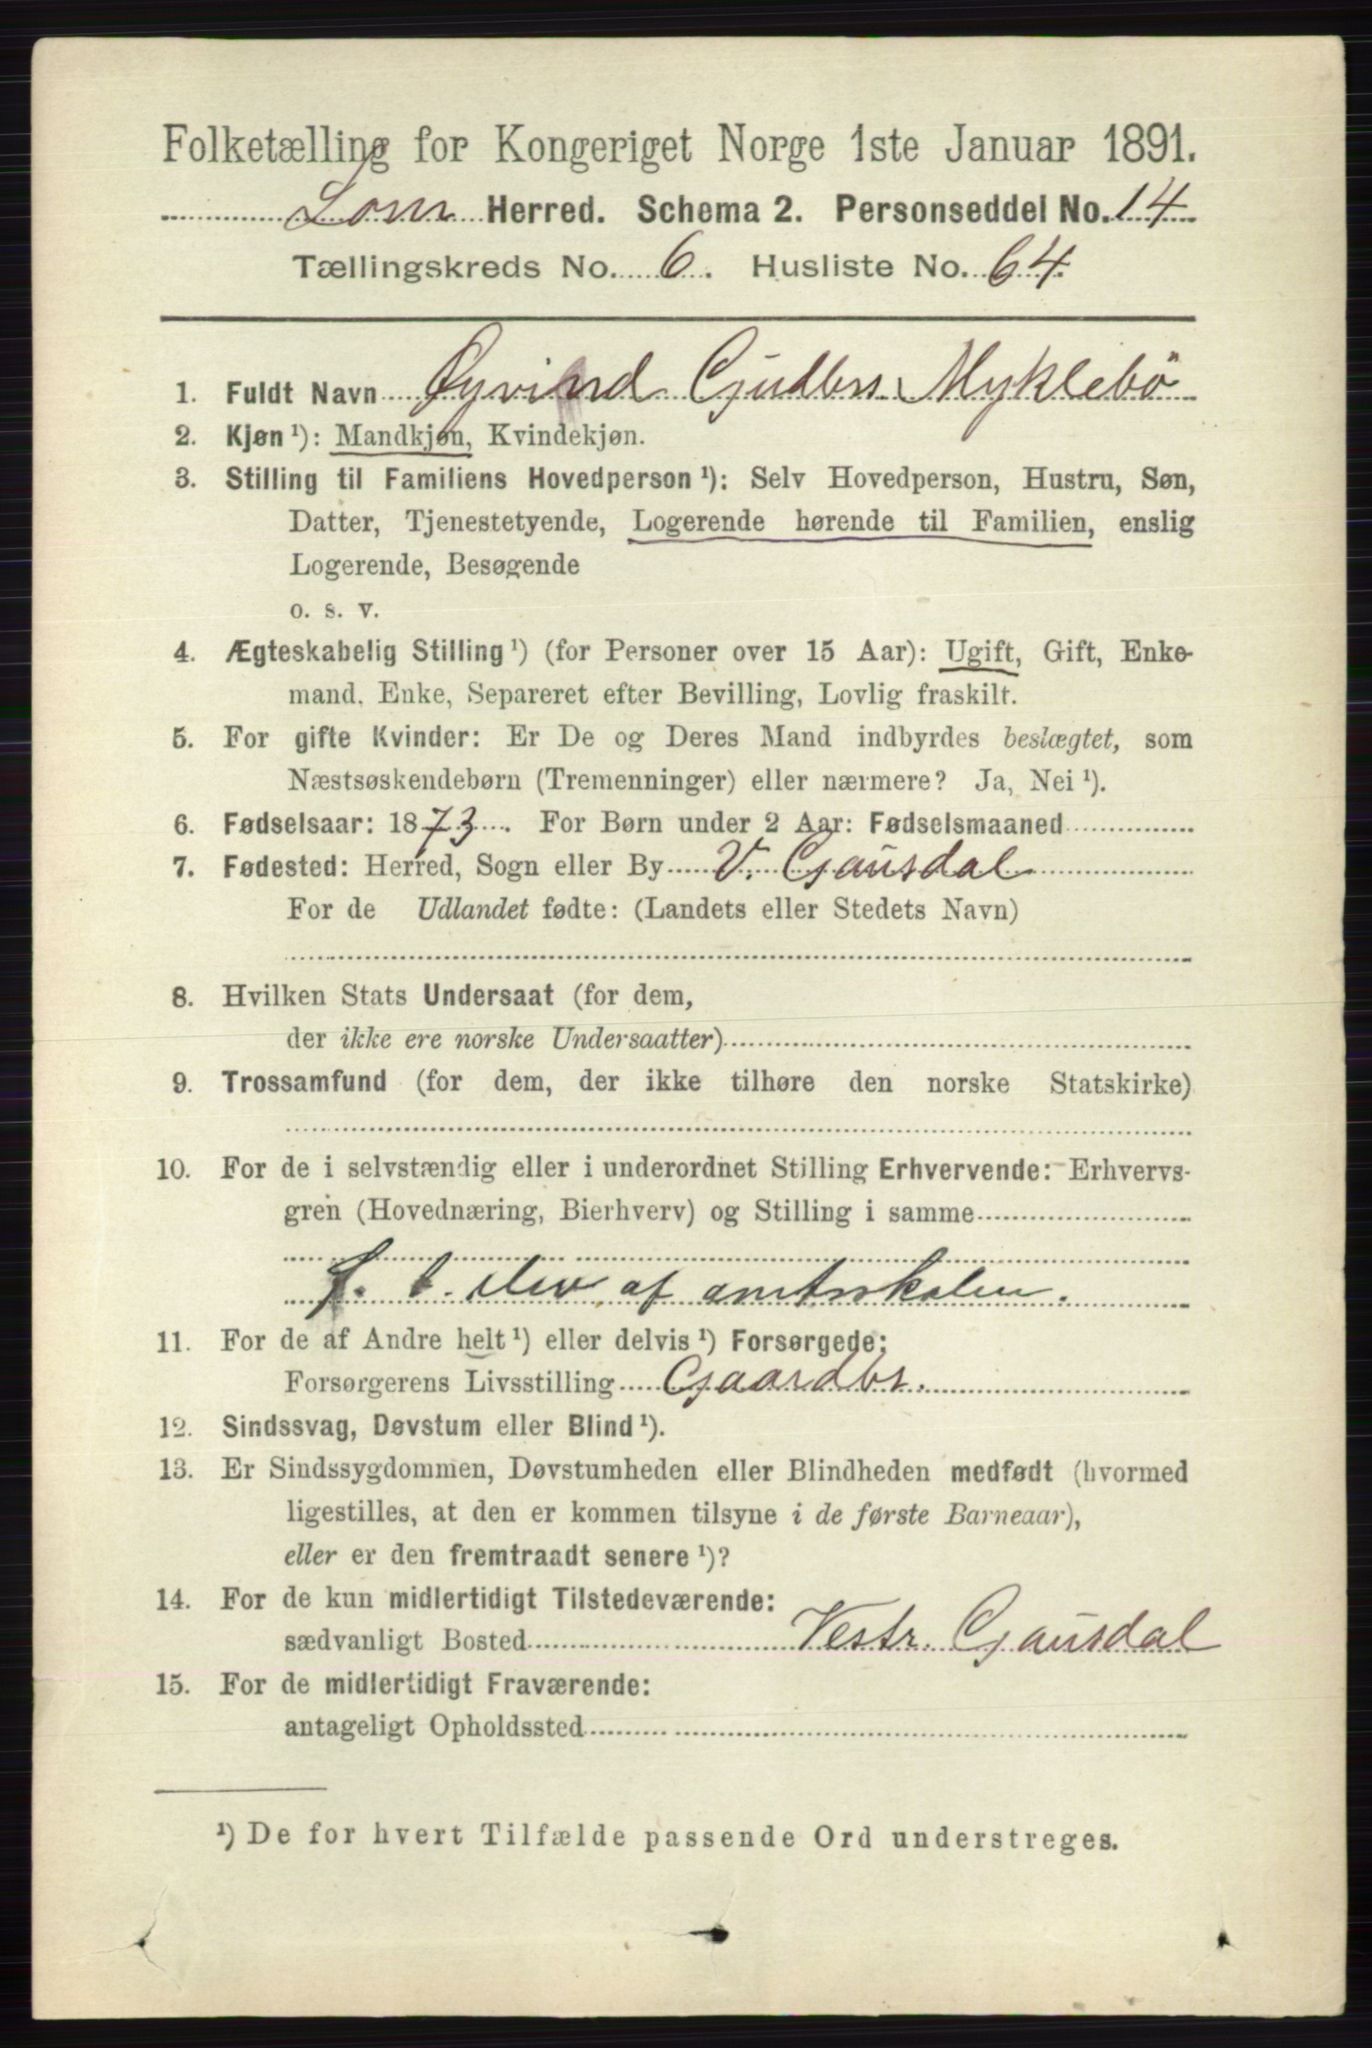 Folketælling for Kongeriget Norge 1ste Januar 1891.
Lom Herred. Schema 2. Personseddel No. 14
Tællingskreds No. 6. Husliste No. 64.
1. Fuldt Navn Øyvind Gudbrs. Myklebö
2. Kjøn ¹): Mandkjøn, Kvindekjøn.
3. Stilling til Familiens Hovedperson ¹): Selv Hovedperson, Hustru, Søn,
Datter, Tjenestetyende, Logerende hørende til Familien, enslig
Logerende, Besøgende
o. s. v.
4. Ægteskabelig Stilling ¹) (for Personer over 15 Aar): Ugift, Gift, Enke-
mand, Enke, Separeret efter Bevilling, Lovlig fraskilt.
5. For gifte Kvinder: Er De og Deres Mand indbyrdes beslægtet, som
Næstsøskendebørn (Tremenninger) eller nærmere? Ja, Nei ¹).
6. Fødselsaar: 1873. For Børn under 2 Aar: Fødselsmaaned
7. Fødested: Herred, Sogn eller By V. Gausdal
For de Udlandet fødte: (Landets eller Stedets Navn)
8. Hvilken Stats Undersaat (for dem,
der ikke ere norske Undersaatter)
9. Trossamfund (for dem, der ikke tilhøre den norske Statskirke)
10. For de i selvstændig eller i underordnet Stilling Erhvervende: Erhvervs-
gren (Hovednæring, Bierhverv) og Stilling i samme
f. t. elev af amtsskolen.
11. For de af Andre helt ¹) eller delvis ¹) Forsørgede:
Forsørgerens Livsstilling Gaardbr.
12. Sindssvag, Døvstum eller Blind ¹).
13. Er Sindssygdommen, Døvstumheden eller Blindheden medfødt (hvormed
ligestilles, at den er kommen tilsyne i de første Barneaar),
eller er den fremtraadt senere ¹)?
14. For de kun midlertidigt Tilstedeværende:
sædvanligt Bosted Vestr. Gausdal
15. For de midlertidigt Fraværende:
antageligt Opholdssted
¹) De for hvert Tilfælde passende Ord understreges.